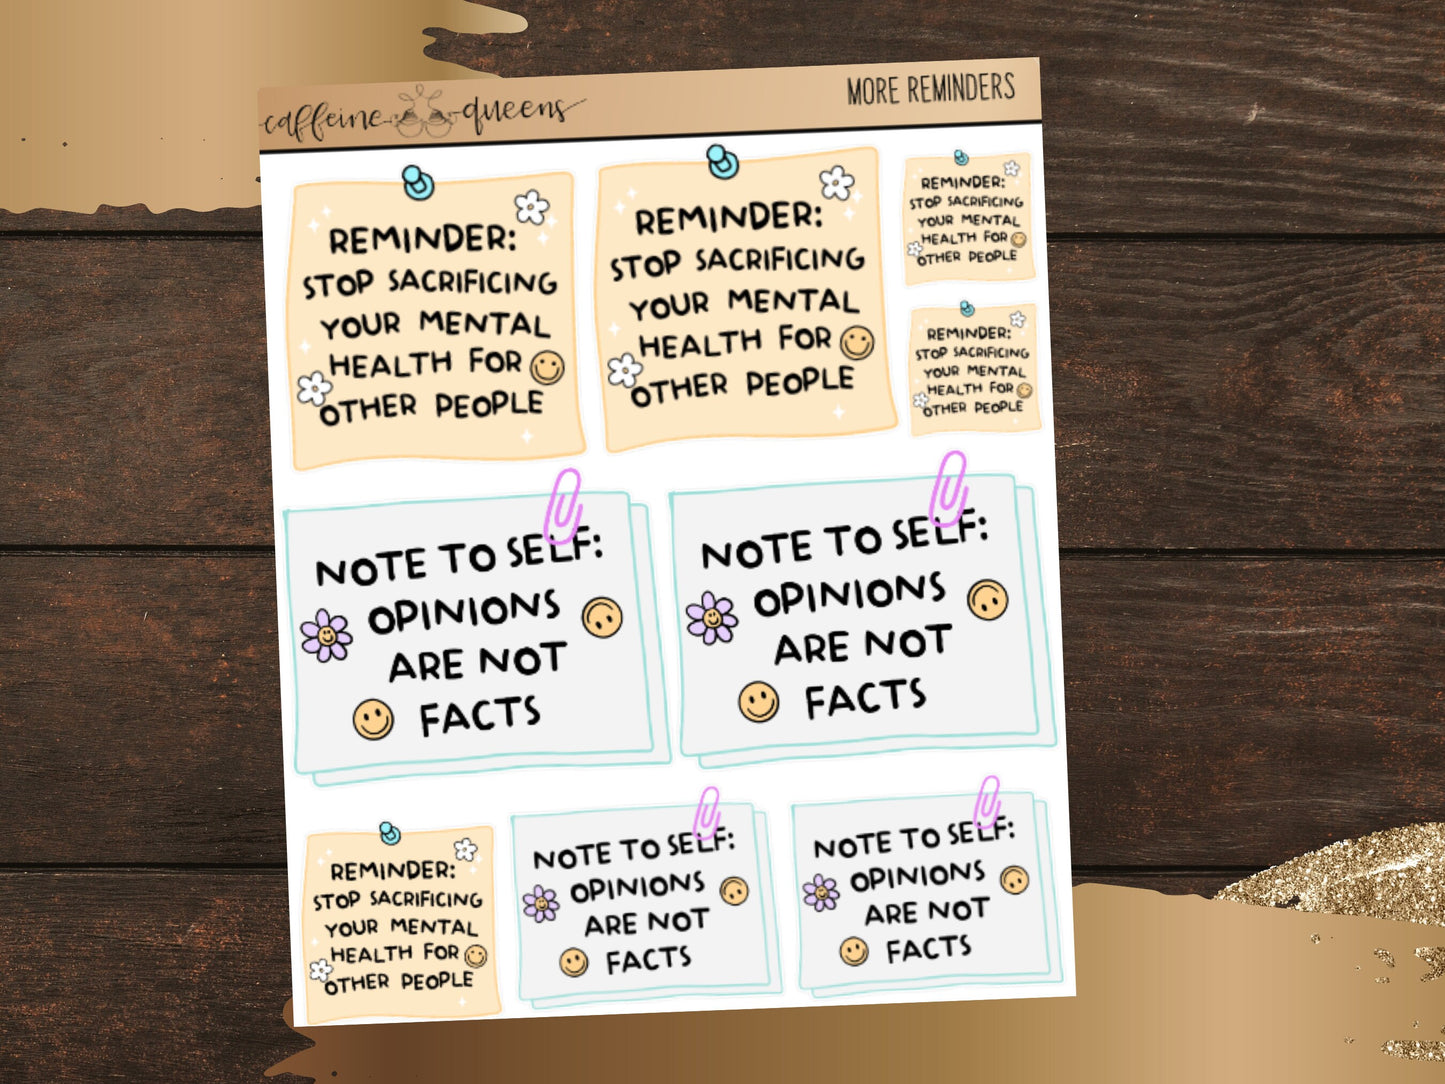 caffeine queens
MORE REMINDERS
REMINDER:
STOP SACRIFICING
YOUR MENTAL
HEALTH FOR
OTHER PEOPLE
REMINDER:
STOP SACRIFICING
YOUR MENTAL
HEALTH FOR
OTHER PEOPLE
REMINDER:
STOP SACRIFICING
YOUR MENTAL
HEALTH FOR
OTHER PEOPLE
REMINDER:
STOP SACRIFICING
YOUR MENTAL
HEALTH FOR
OTHER PEOPLE
NOTE TO SELF:
OPINIONS
ARE NOT
FACTS
NOTE TO SELF:
OPINIONS
ARE NOT
FACTS
REMINDER:
STOP SACRIFICING
YOUR MENTAL
HEALTH FOR
OTHER PEOPLE
NOTE TO SELF:
OPINIONS
ARE NOT
FACTS
NOTE TO SELF:
OPINIONS
ARE NOT
FACTS